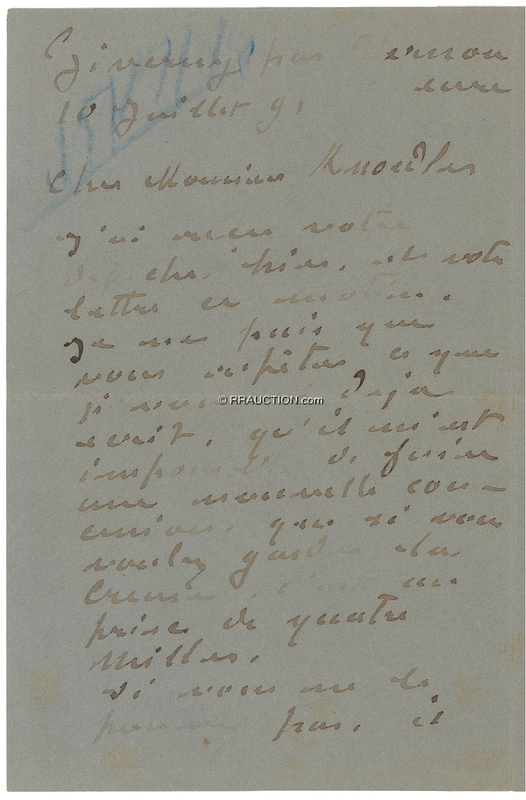 Giverny par Vernon
eure
10 Juillet 91
Cher Monsieur Knoedler
J'ai recu votre
depeche hier, et votre
lettre ce matin.
Je ne puis que
vous repeter ce que
j'vous ai deja
© RRAUCTION.com
ecrit, qu'il m'est
impossible de faire
une nouvelle con-
cession, que si vous
voulez garder la
Creuse, c'est au
prise de quatre
milles.
Si vous ne le
pouvez pas, il